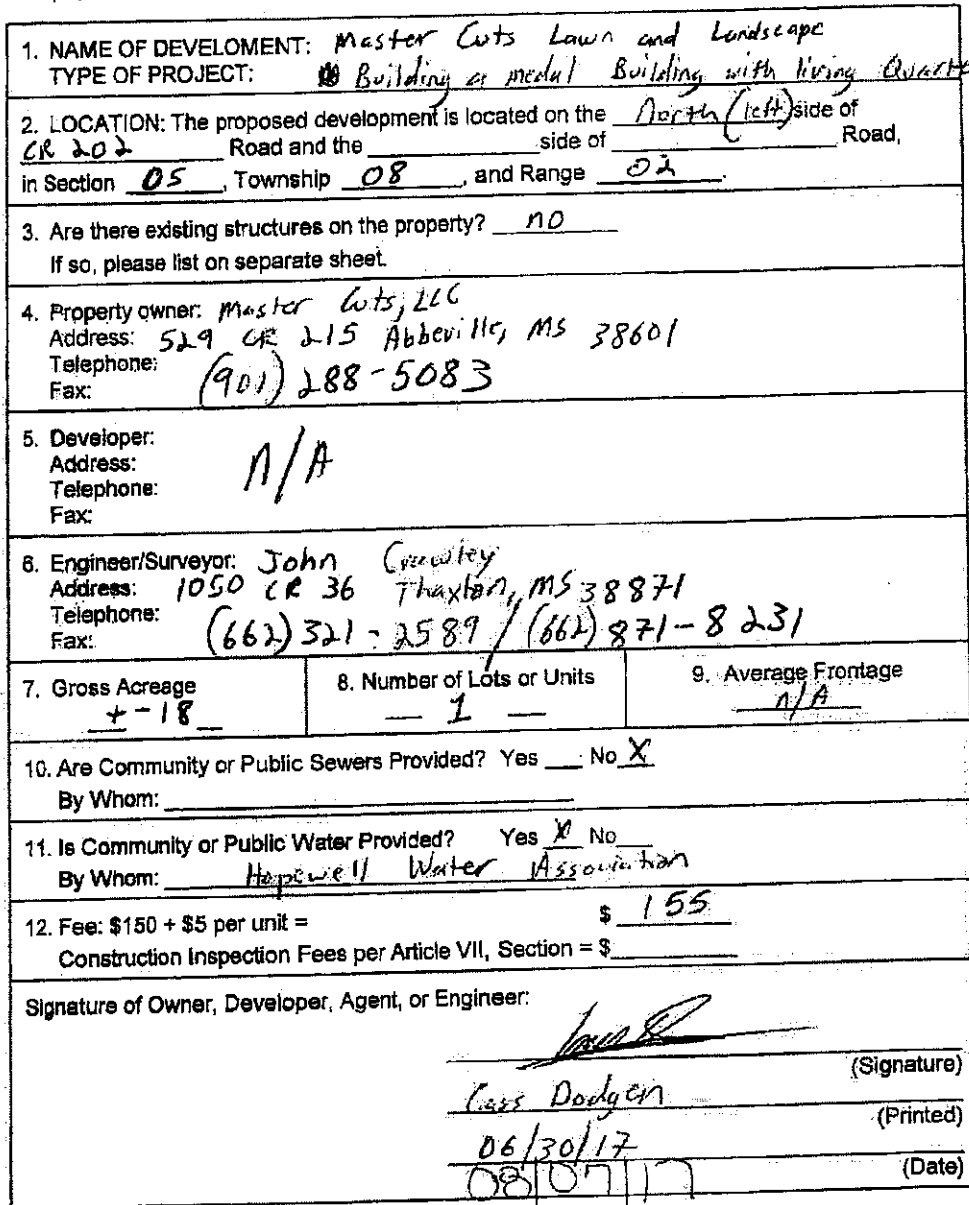 1. NAME OF DEVELOMENT: Master Cuts Lawn and Landscape
TYPE OF PROJECT: Building a medal Building with living Quarte
2. LOCATION: The proposed development is located on the North (left) side of
CR 202 Road and the ____ side of ____ Road,
in Section 05, Township 08, and Range 02.
3. Are there existing structures on the property? no
If so, please list on separate sheet.
4. Property owner: Master Cuts, LLC
Address: 529 CR 215 Abbeville, MS 38601
Telephone:
Fax: (901) 288-5083
5. Developer:
Address: n/A
Telephone:
Fax:
6. Engineer/Surveyor: John Crawley
Address: 1050 CR 36 Thaxton, MS 38871
Telephone:
Fax: (662) 321-2589 / (662) 871-8231
7. Gross Acreage 8. Number of Lots or Units 9. Average Frontage
+-18 1 n/A
10. Are Community or Public Sewers Provided? Yes ___ No X
By Whom: ____
11. Is Community or Public Water Provided? Yes X No ___
By Whom: Hopewell Water Association
12. Fee: $150 + $5 per unit = $ 155
Construction Inspection Fees per Article VII, Section = $____
Signature of Owner, Developer, Agent, or Engineer:
(Signature)
Cass Dodgen
(Printed)
06/30/17
08/07/17
(Date)